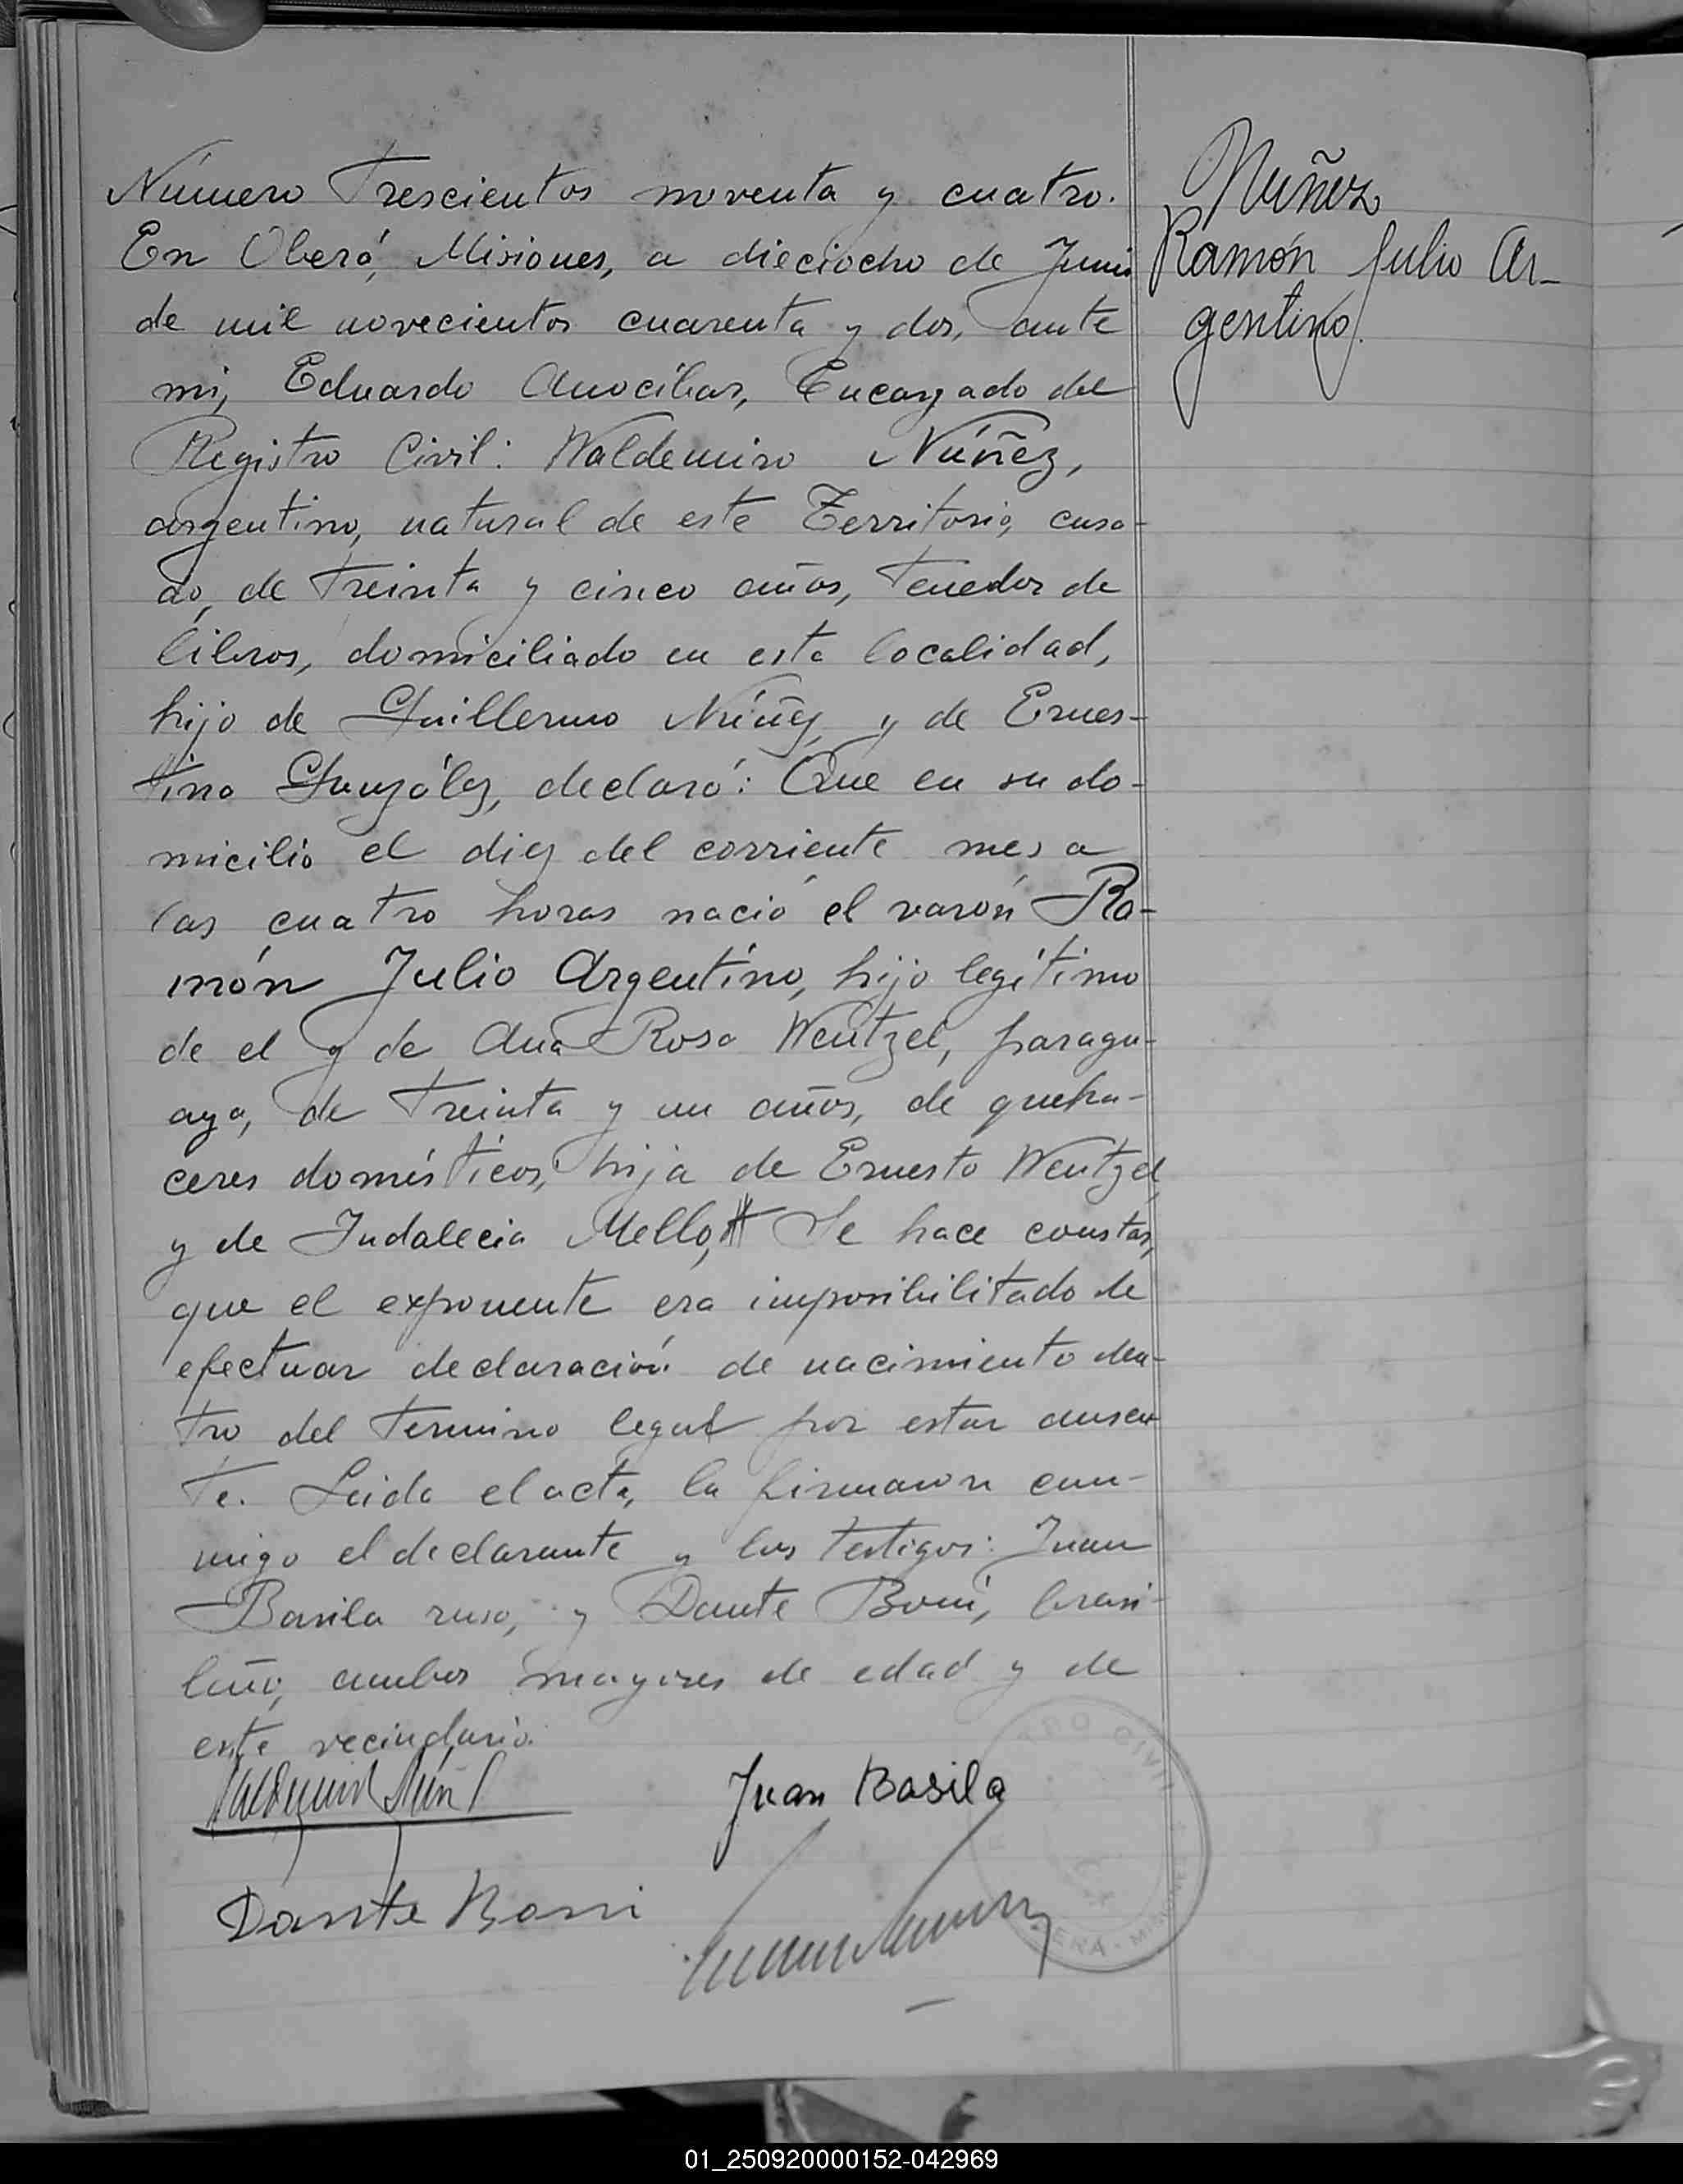 Número Trescientos noventa y cuatro.
En Oberá, Misiones, a dieciocho de Junio
de mil novecientos cuarenta y dos, ante
mi, Eduardo Anocíbar, Encargado del
Registro Civil: Waldemiro Núñez,
argentino, natural de este Territorio, casa-
do, de treinta y cinco años, tenedor de
libros, domiciliado en esta localidad,
hijo de Guillermo Núñez, y de Ernes-
tina Gonzáles, declaró: Que en su do-
micilio el diez del corriente mes a
las cuatro horas nació el varón Ra-
món Julio Argentino, hijo legítimo
de el y de Ana Rosa Wentzel, paragu-
aya, de treinta y un años, de queha-
ceres domésticos, hija de Ernesto Wentzel
y de Indalecia Mello, Se hace constar,
que el exponente era imposibilitado de
efectuar declaración de nacimiento den-
tro del termino legal por estar ausen-
te. Leida el acta, la firmaron con-
migo el declarante y los testigos: Juan
Basila ruso, y Dante Boni, brasi-
leño, ambos mayores de edad y de
este vecindario.
Juan Basila
Dante Boni
Nuñez
Ramón Julio Ar-
gentino.
01_250920000152-042969